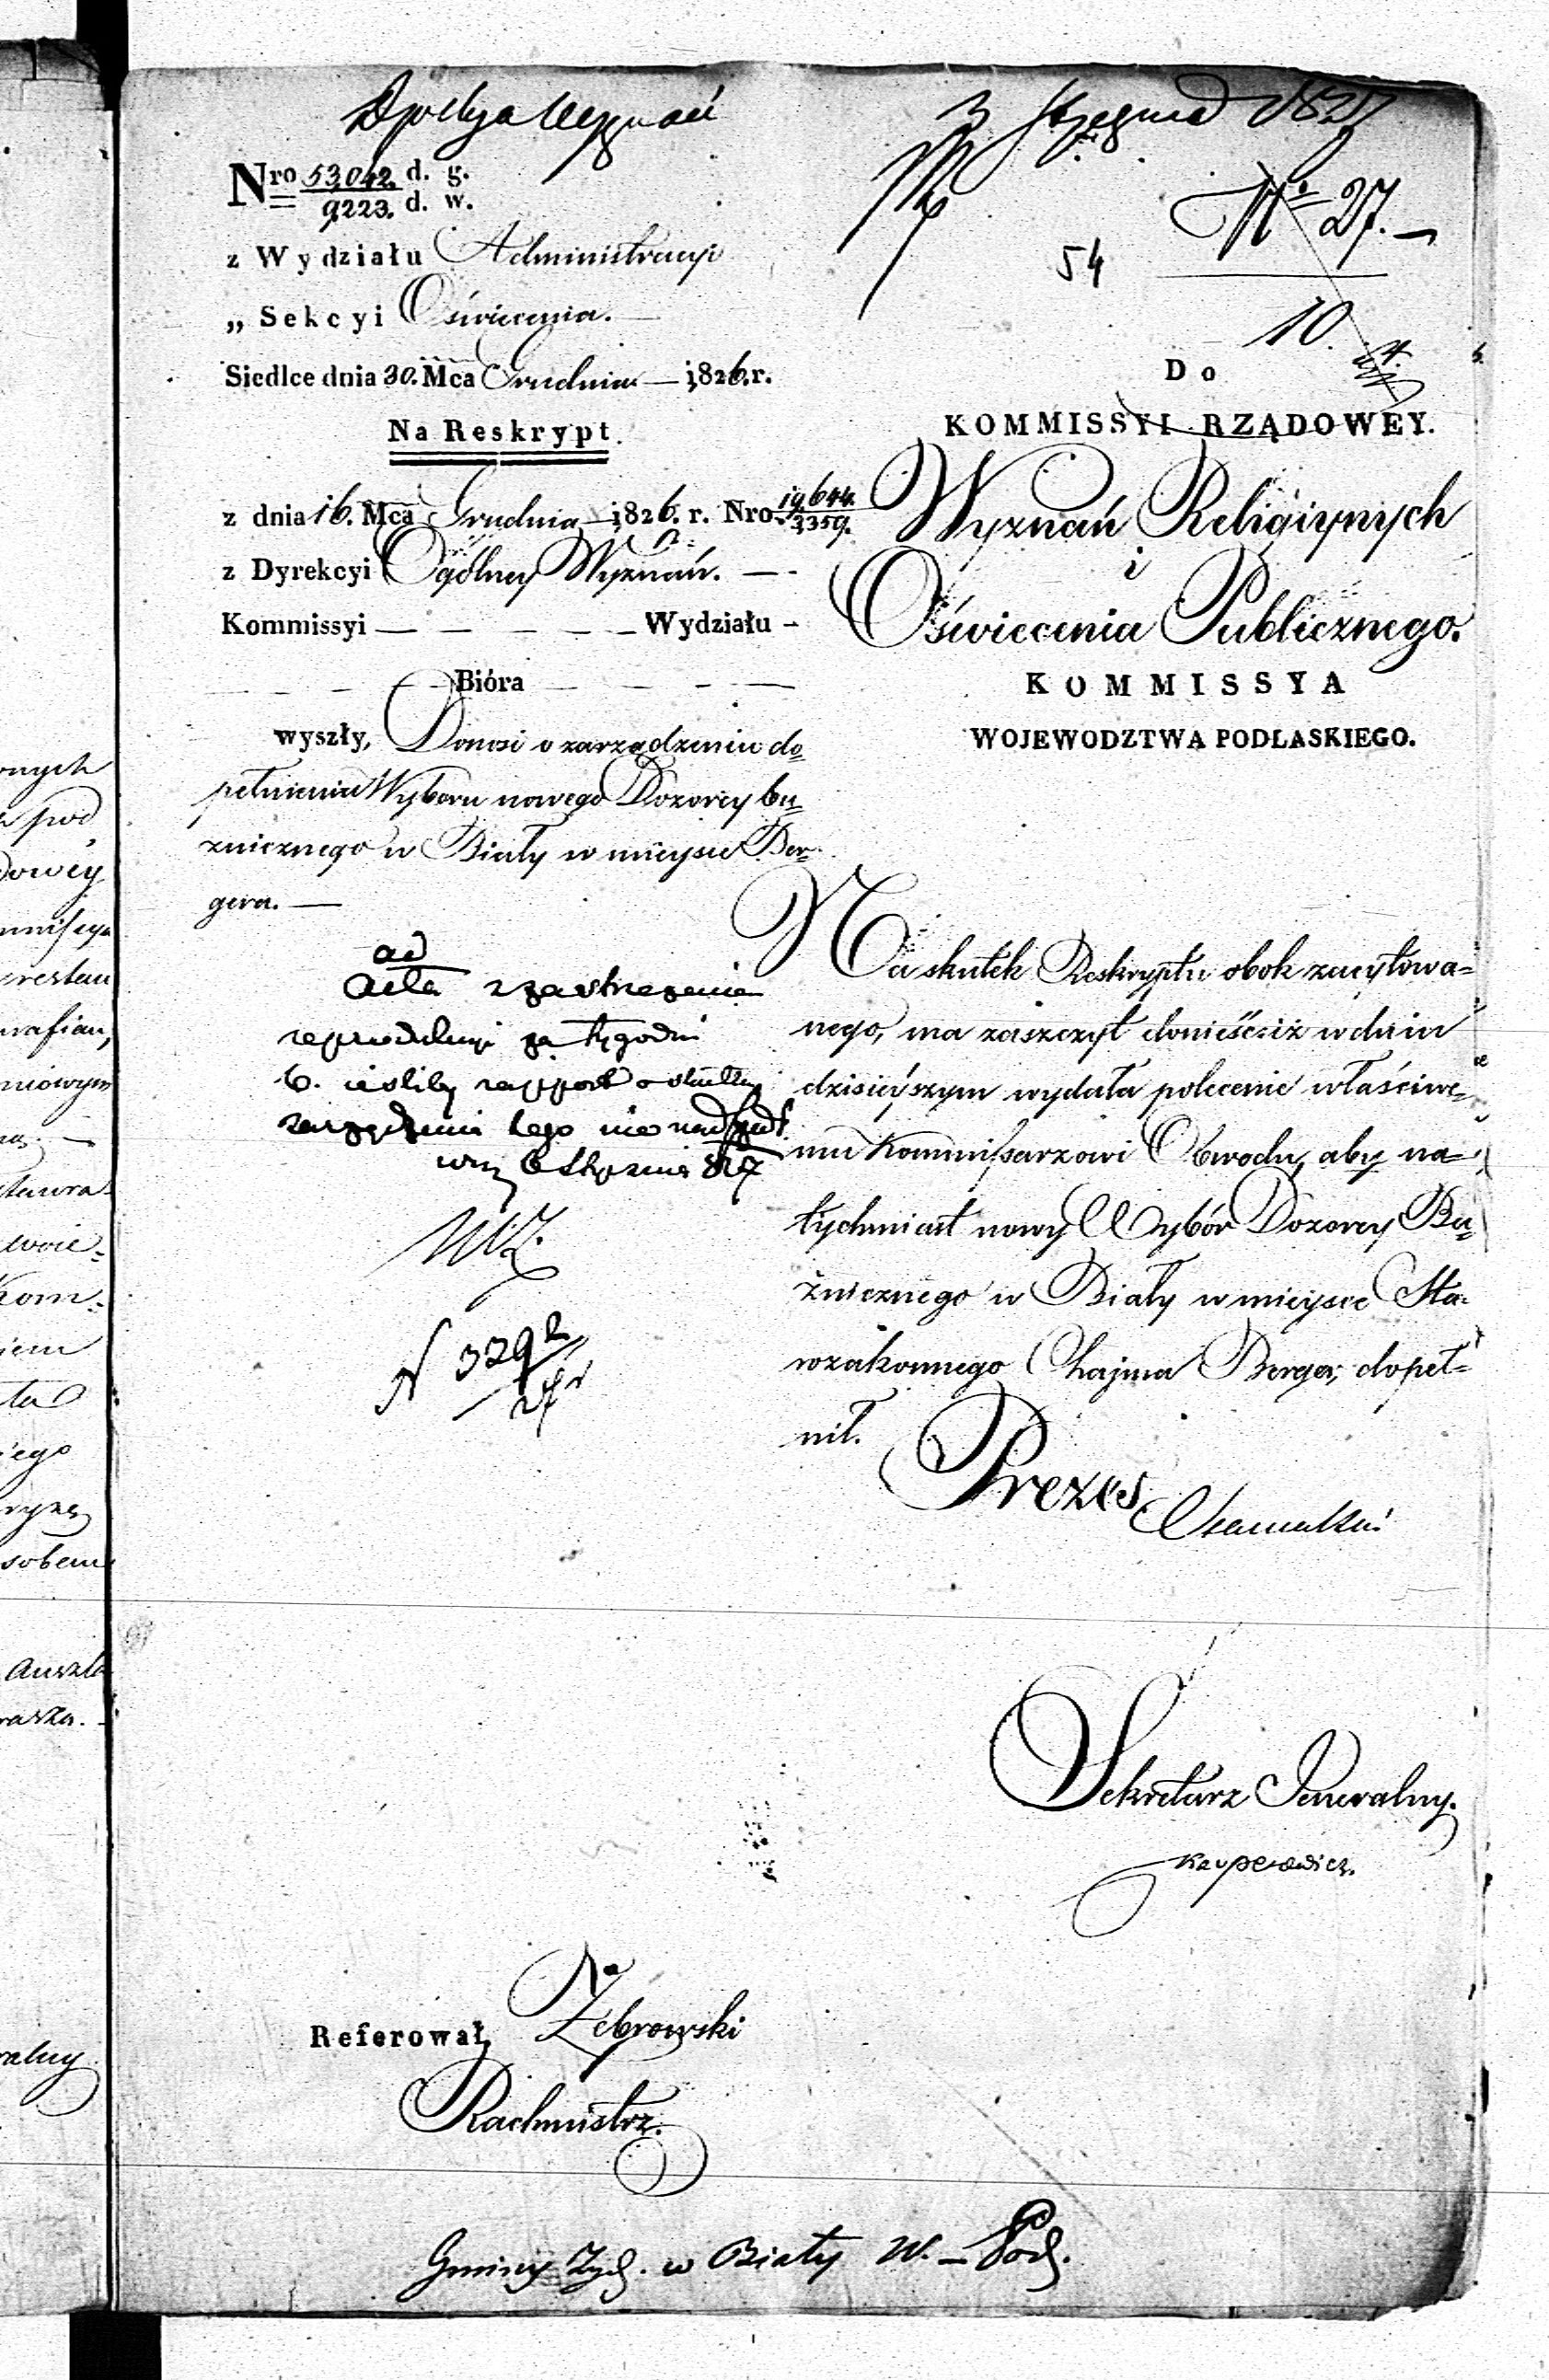 3 1827
Nro 53,042. d. g.
9223. d. w.
z Wydziału Administracyi
„ Sekcyi Oświecenia.
Siedlce dnia 30. Mca Grudnia — 1826. r.
Na Reskrypt.
z dnia 16. Mca Grudnia — 1826. r. Nro 19,644.
3359.
z Dyrekcyi Ogólney Wyznań. —
Kommissyi — — — — — Wydziału -
— — — — Bióra — — — —
wyszły, Donosi o zarządzeniu do=
pełnienia Wyboru nowego Dozorcy bu=
żnicznego w Biały w mieysce Ber=
gera. —
ad
acta z zastrzeżeniem
reprodukcyi za tygodni
6. ieśliby rapport o skutku
zarządzenia tego nie nadszedł
6 Stycznia 827
N 3292
No 27. —
54
10.
Do
KOMMISSYI RZĄDOWEY.
Wyznań Religiynych
i
Oświecenia Publicznego.
KOMMISSYA
WOJEWODZTWA PODLASKIEGO.
Na skutek Reskryptu obok zacytowa=
nego, ma zaszczyt donieść: iż w dniu
dzisieyszym wydała polecenie właściwe=
mu Kommissarzowi Obwodu, aby na=
tychmiast nowy Wybór Dozorcy Bu=
żnicznego w Biały w mieysce Sta=
rozakonnego Chajma Berger, dopeł=
nił.
Prezes
Sekretarz Jeneralny.
Referował, Żebrowski
Rachmistrz.
Gminy Żyd. w Biały W. — Pod.